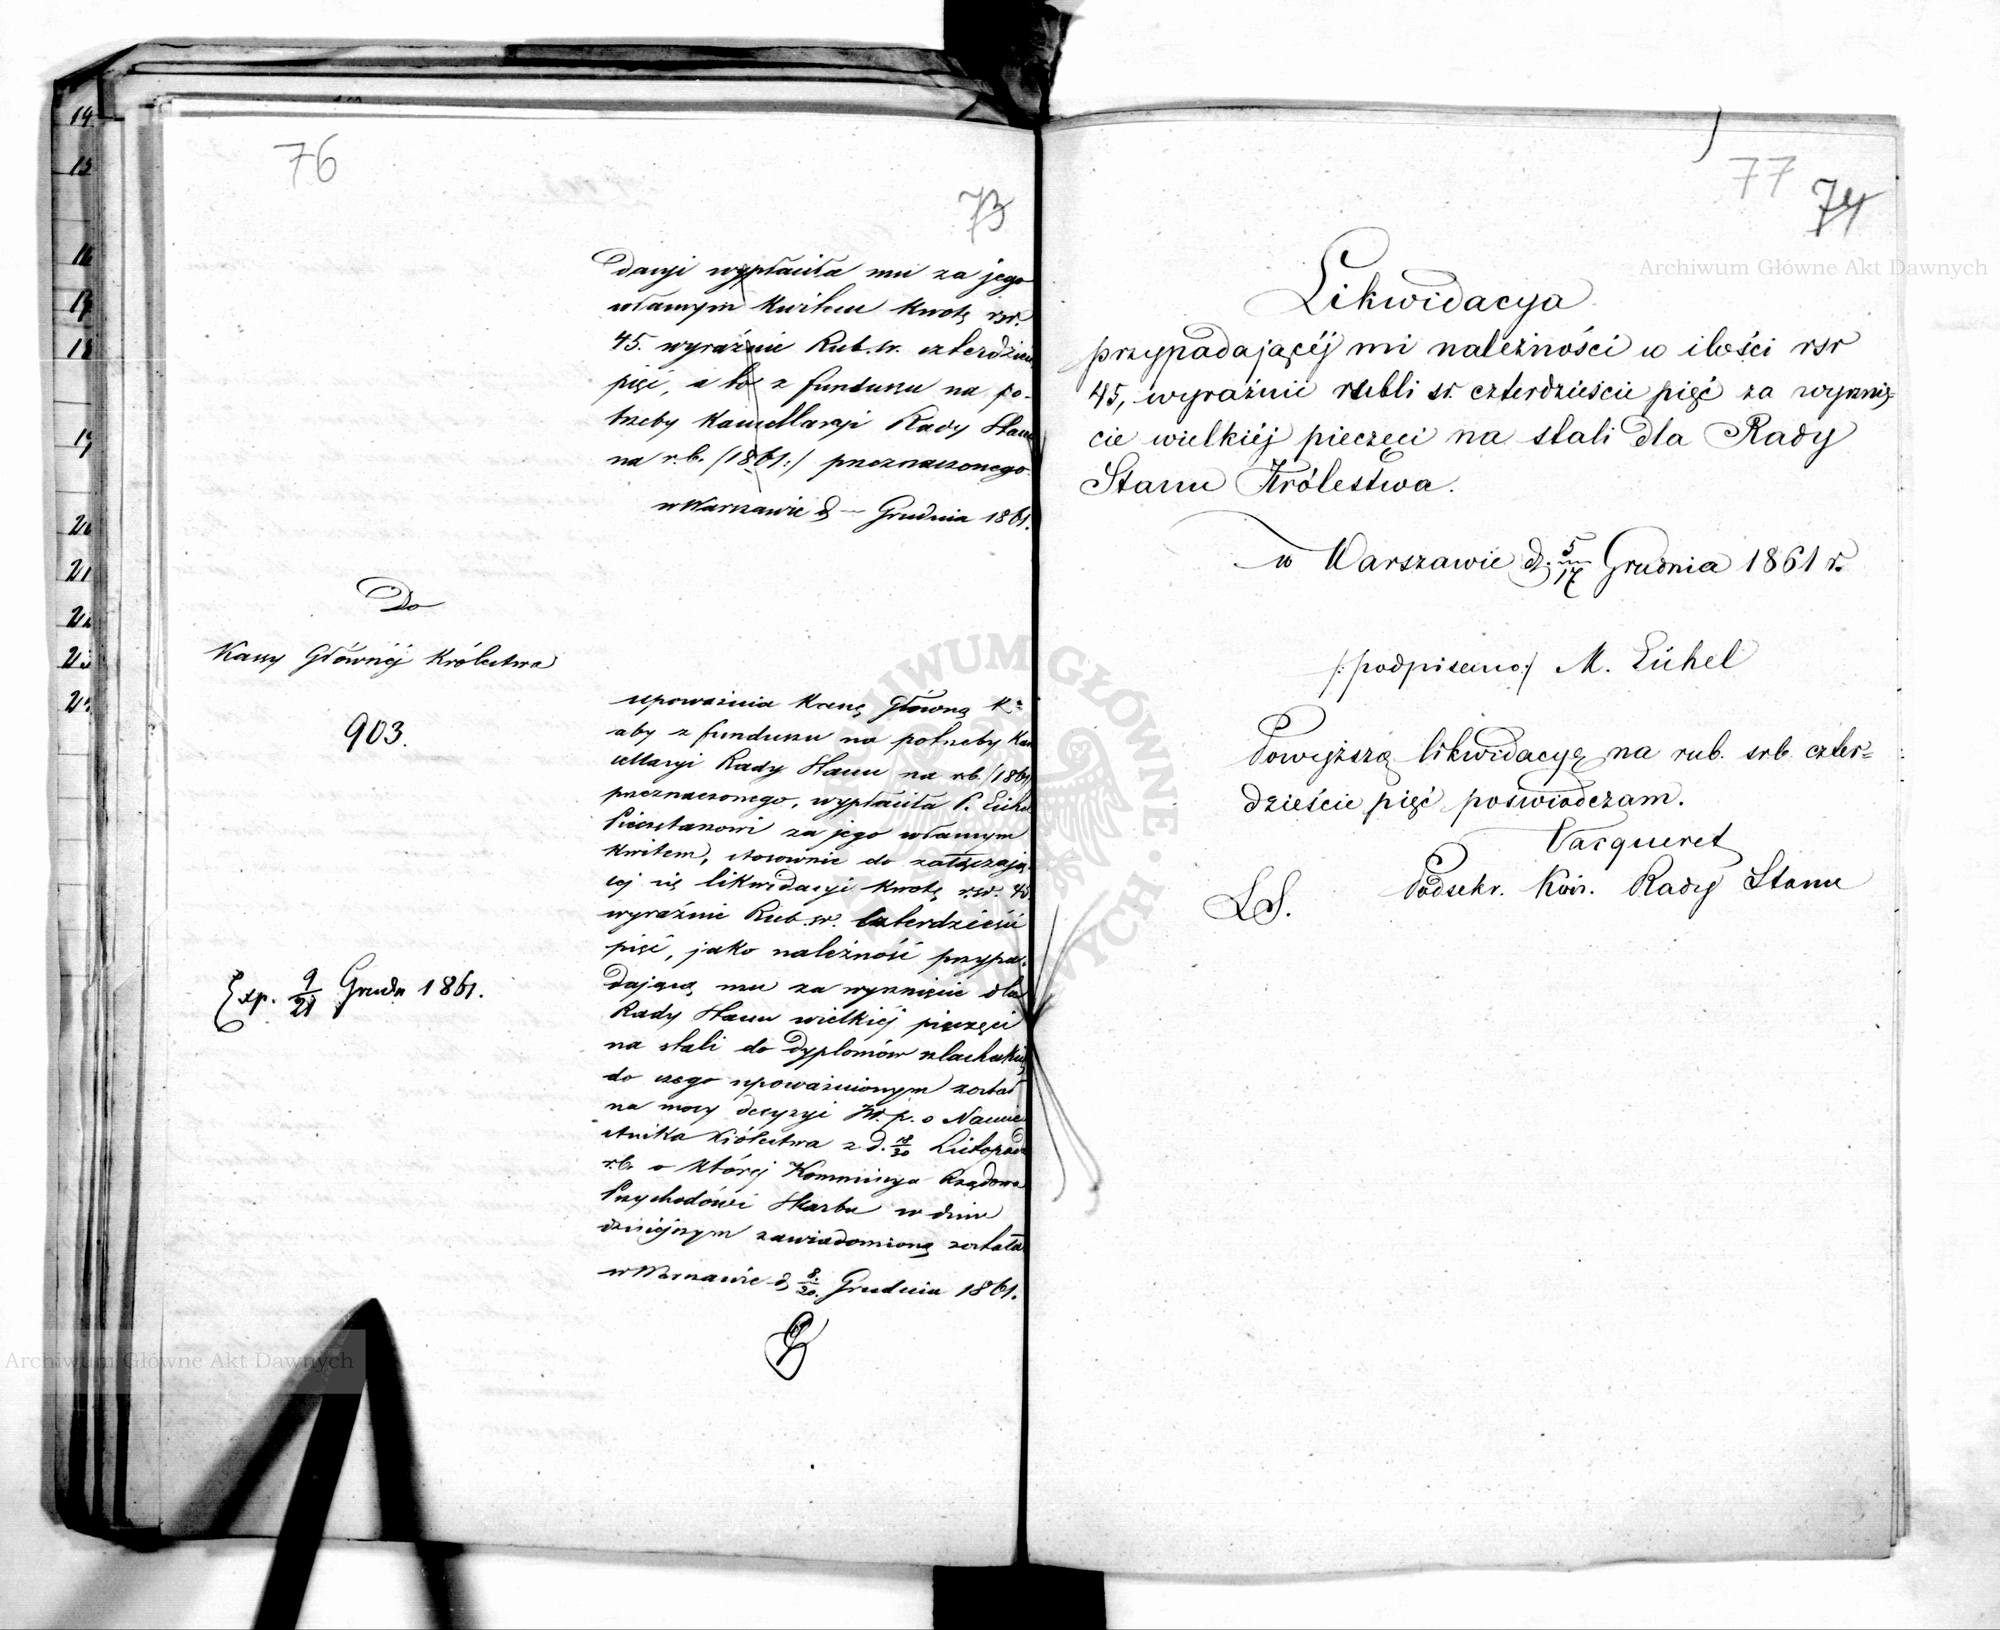 76
73
dacyi wypłaciła mu za jego
własnym kwitem kwotę rsr.
45. wyraźnie Rub. sr. czterdzieści
pięć, a to z funduszu na po-
trzeby Kancellaryi Rady Stanu
na r.b. /1861:/ przeznaczonego.
w Warszawie d — Grudnia 1861.
Do
Kassy Głównéj Królestwa
903.
upoważnia Kassę Główną K
aby z funduszu na potrzeby Kan
cellaryi Rady Stanu na r.b. /1861/
przeznaczonego, wypłaciła P. Eichel
Pieczętarzowi za jego własnym
kwitem, stosownie do załączają-
cej się likwidacyi kwotę rsr. 45
wyraźnie Rub. sr. czterdzieści
pięć, jako należność przypa-
dającą mu za wyrznięcie dla
Rady Stanu wielkiéj pieczęci
na stali do dyplomów szlacheckich
do czego upoważnionym został
na mocy decyzyi JW. p. o Namie
stnika Królestwa z d. 18/30 Listopada
r.b. o któréj Kommissya Rządowa
Przychodów i Skarbu w dniu
dzisiejszym zawiadomioną została
w Warszawie d 8/20. Grudnia 1861.
Exp. 9/21 Grudn 1861.
77
74
Likwidacya
przypadającéj mi należności w ilości rsr
45, wyraźnie rubli sr. czterdzieście pięć za wyrznię-
cie wielkiéj pieczęci na stali dla Rady
Stanu Królestwa.
w Warszawie d. 5/17 Grudnia 1861 r.
/:podpisano:/ M. Eichel
Powyższą likwidacyę na rub. srb. czter=
dzieście pięć poświadczam.
Vacqueret
Podsekr. Kań. Rady Stanu
LS.
14
15
16
17
18
19
20
21
22
23
Archiwum Główne Akt Dawnych
Archiwum Główne Akt Dawnych
ARCHIWUM GŁÓWNE AKT DAWNYCH